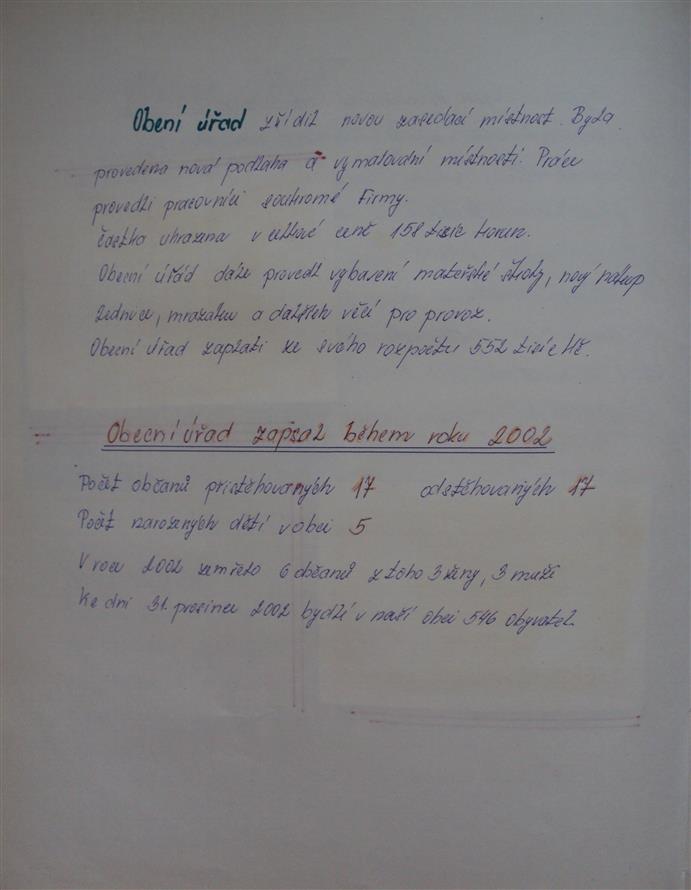 Obení úřad zřídil novou zasedací místnost. Byla
provedena nová podlaha a vymalování místnosti. Práce
provedli pracovníci soukromé Firmy.
Částka uhrazena v celkové ceně 158 tisíc korun.
Obecní úřad dále provedl vybavení mateřské školy, nový nákup
lednice, mrazáku a dalších věcí pro provoz.
Obecní úřad zaplatil ze svého rozpočtu 552 tisíc Kč.
Obecní úřad zapsal během roku 2002
Počet občanů přistěhovaných 17 odstěhovaných 17
Počet narozených dětí v obci 5
V roce 2002 zemřelo 6 občanů z toho 3 ženy, 3 muži
Ke dni 31. prosince 2002 bydlí v naší obci 546 obyvatel.